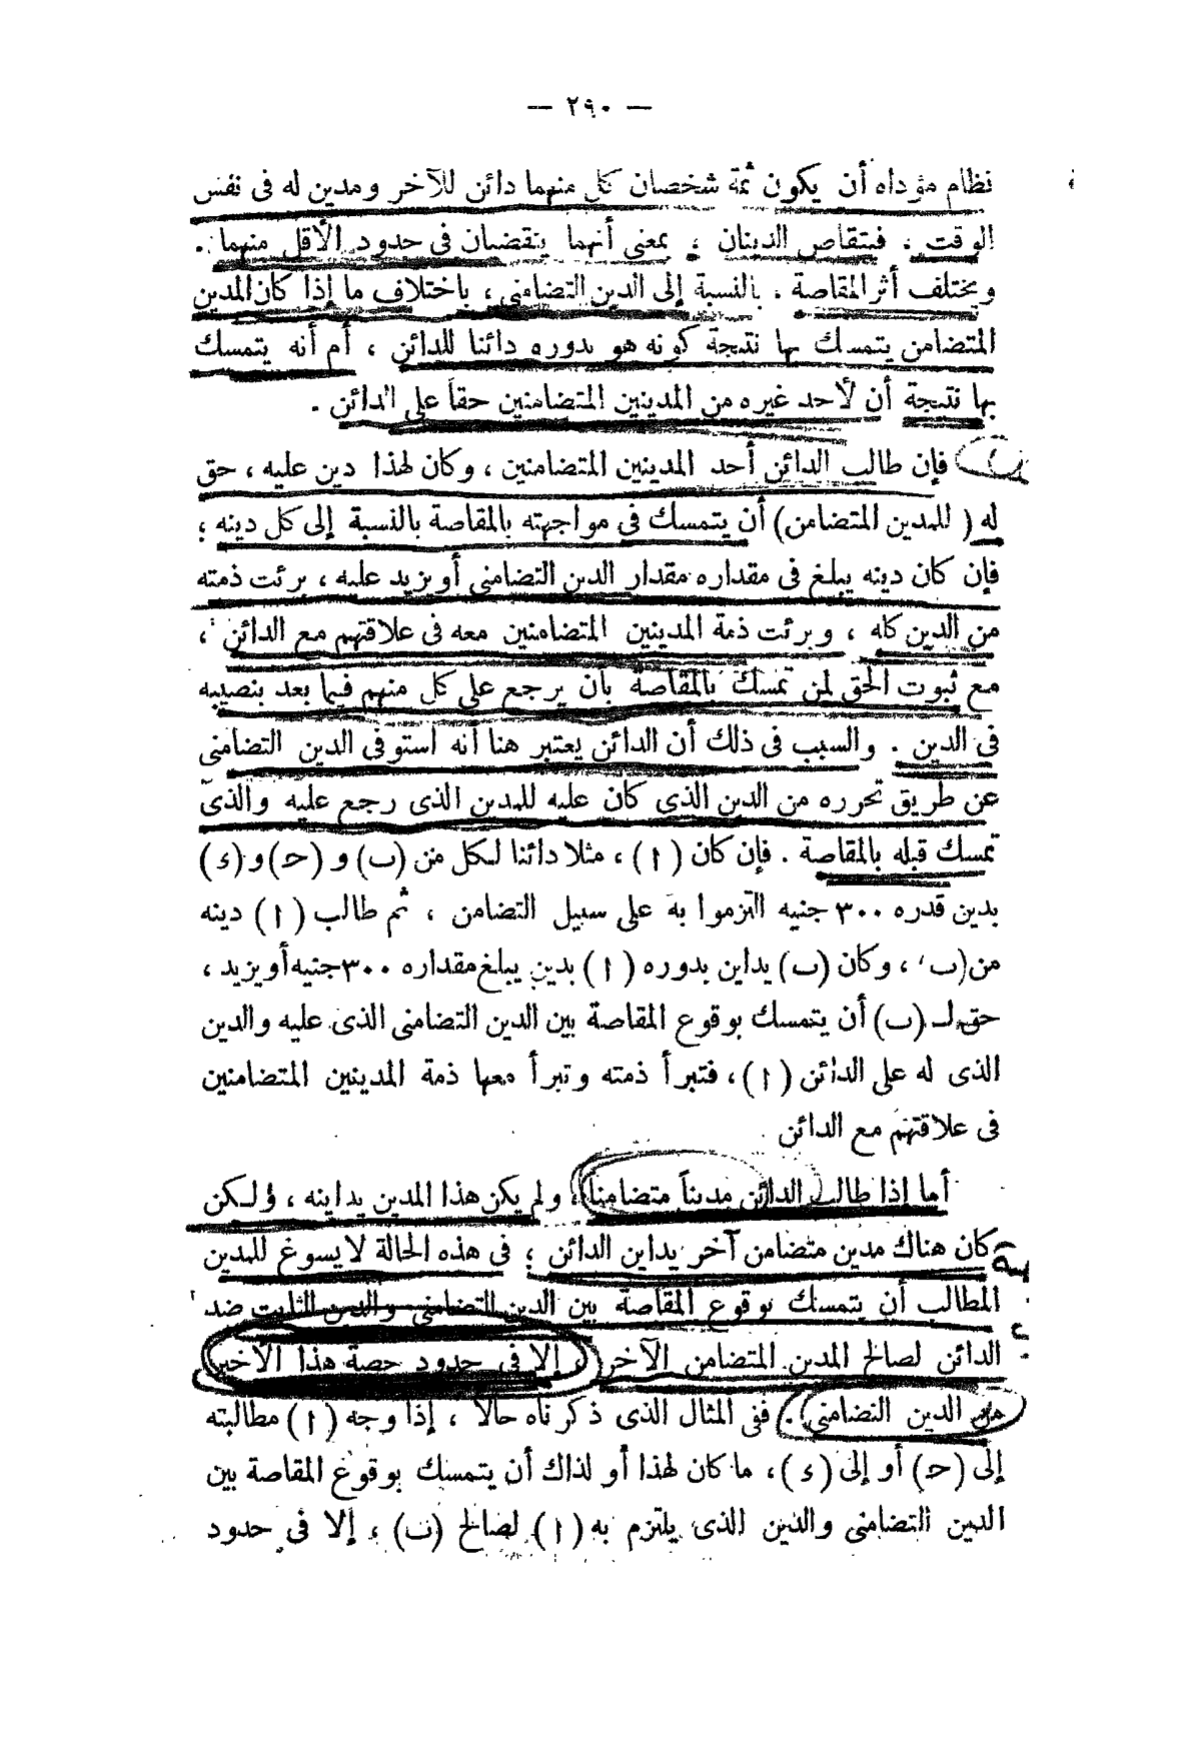 — ٢٩٠ —
نظام مؤداه أن يكون ثمة شخصان كل منهما دائن للآخر ومدين له فى نفس
الوقت ، فيتقاص الدينان ، بمعنى أنهما ينقضيان فى حدود الأقل منهما .
ويختلف أثر المقاصة ، بالنسبة إلى الدين التضامنى ، باختلاف ما إذا كان المدين
المتضامن يتمسك بها نتيجة كونه هو بدوره دائنا للدائن ، أم أنه يتمسك
بها نتيجة أن لأحد غيره من المدينين المتضامنين حقاً على الدائن .
فإن طالب الدائن أحد المدينين المتضامنين ، وكان لهذا دين عليه ، حق
له ( للمدين المتضامن ) أن يتمسك فى مواجهته بالمقاصة بالنسبة إلى كل دينه ؛
فإن كان دينه يبلغ فى مقداره مقدار الدين التضامنى أو يزيد عليه ، برئت ذمته
من الدين كله ، وبرئت ذمة المدينين المتضامنين معه فى علاقتهم مع الدائن ،
مع ثبوت الحق لمن تمسك بالمقاصة بأن يرجع على كل منهم فيما بعد بنصيبه
فى الدين . والسبب فى ذلك أن الدائن يعتبر هنا أنه استوفى الدين التضامنى
عن طريق تحرره من الدين الذى كان عليه للمدين الذى رجع عليه والذى
تمسك قبله بالمقاصة . فإن كان ( ا ) ، مثلا دائنا لكل من (ب) و (ح) و (ء)
بدين قدره ٣٠٠ جنيه التزموا به على سبيل التضامن ، ثم طالب ( ا ) دينه
من (ب) ، وكان (ب) يداين بدوره ( ا ) بدين يبلغ مقداره ٣٠٠ جنيه أو يزيد ،
حق لـ (ب) أن يتمسك بوقوع المقاصة بين الدين التضامنى الذى عليه والدين
الذى له على الدائن ( ا ) ، فتبرأ ذمته وتبرأ معها ذمة المدينين المتضامنين
فى علاقتهم مع الدائن
أما إذا طالب الدائن مديناً متضامنا ، ولم يكن هذا المدين يداينه ، ولكن
كان هناك مدين متضامن آخر يداين الدائن ؛ فى هذه الحالة لا يسوغ للمدين
المطالب أن يتمسك بوقوع المقاصة بين الدين التضامنى والدين الثابت ضد
الدائن لصالح المدين المتضامن الآخر ، إلا فى حدود حصة هذا الأخير
من الدين التضامنى . ففى المثال الذى ذكرناه حالا ، إذا وجه ( ا ) مطالبته
إلى (ح) أو إلى (ء) ، ما كان لهذا أو لذاك أن يتمسك بوقوع المقاصة بين
الدين التضامنى والدين الذى يلتزم به ( ا ) لصالح (ب) ، إلا فى حدود